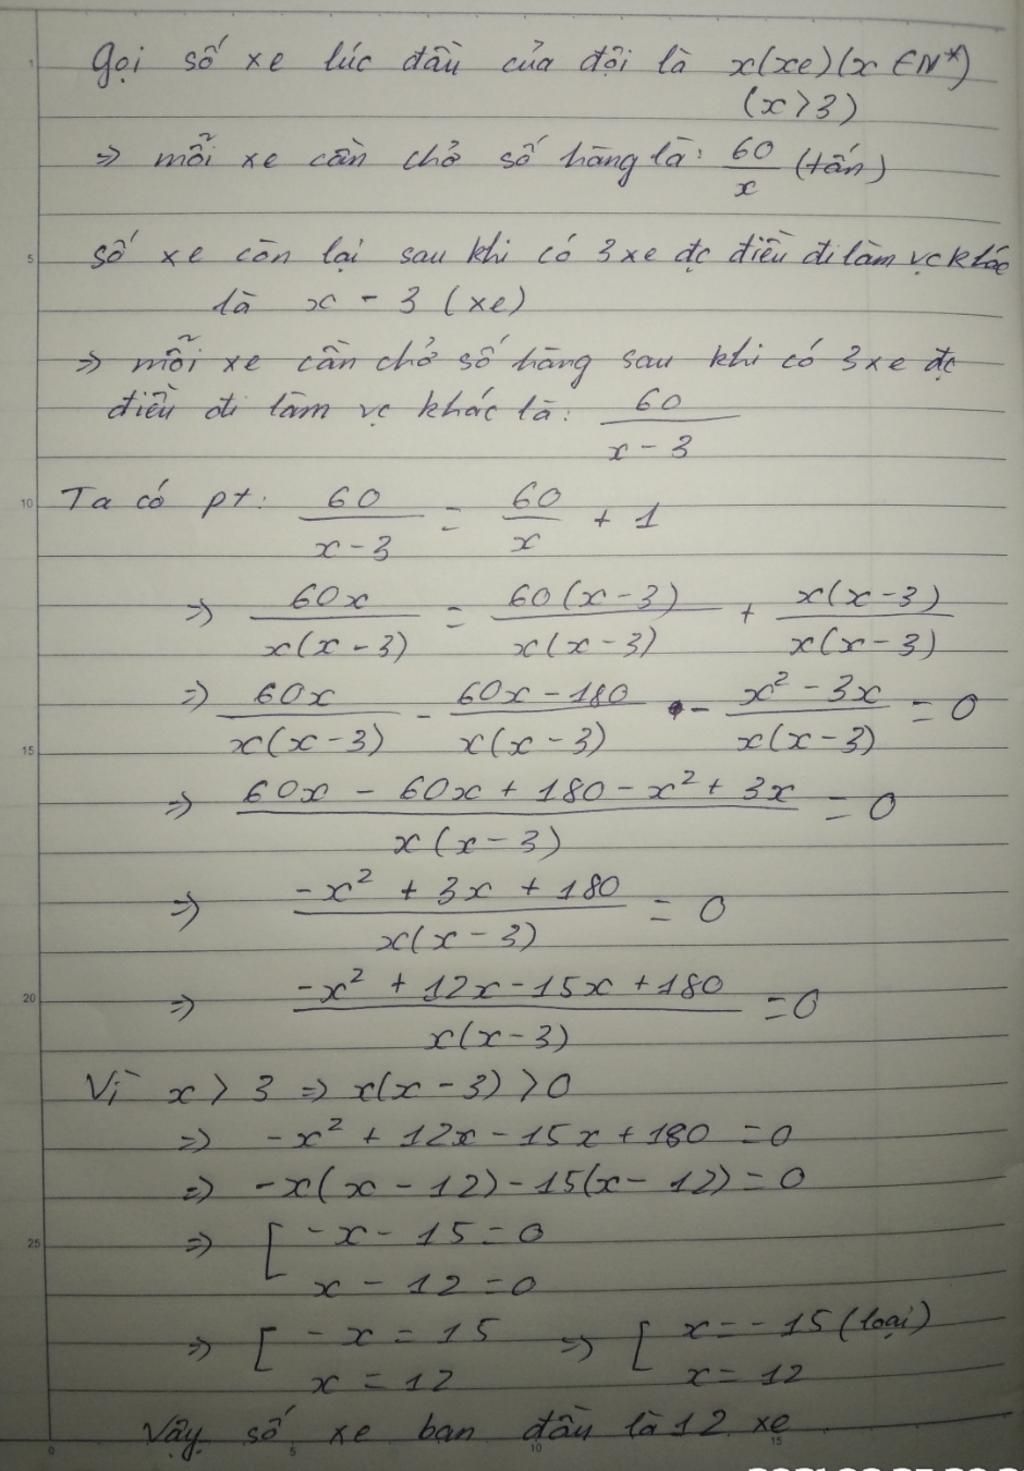 Gọi số xe lúc đầu của đội là x(xe)(x ∈ N*)
(x > 3)
=> mỗi xe cần chở số hàng là: 60/x (tấn)
số xe còn lại sau khi có 3 xe đc điều đi làm vc khác
là x - 3 (xe)
=> mỗi xe cần chở số hàng sau khi có 3 xe đc
điều đi làm vc khác là: 60/(x - 3)
Ta có pt: 60/(x - 3) = 60/x + 1
=> 60x/(x(x - 3)) = 60(x - 3)/(x(x - 3)) + x(x - 3)/(x(x - 3))
=> 60x/(x(x - 3)) - (60x - 180)/(x(x - 3)) - (x² - 3x)/(x(x - 3)) = 0
=> (60x - 60x + 180 - x² + 3x)/(x(x - 3)) = 0
=> (-x² + 3x + 180)/(x(x - 3)) = 0
=> (-x² + 12x - 15x + 180)/(x(x - 3)) = 0
Vì x > 3 => x(x - 3) > 0
=> -x² + 12x - 15x + 180 = 0
=> -x(x - 12) - 15(x - 12) = 0
=> [ -x - 15 = 0
x - 12 = 0
=> [ -x = 15 => [ x = -15 (loại)
x = 12 x = 12
Vậy số xe ban đầu là 12 xe
1
5
10
15
20
25
0 5 10 15